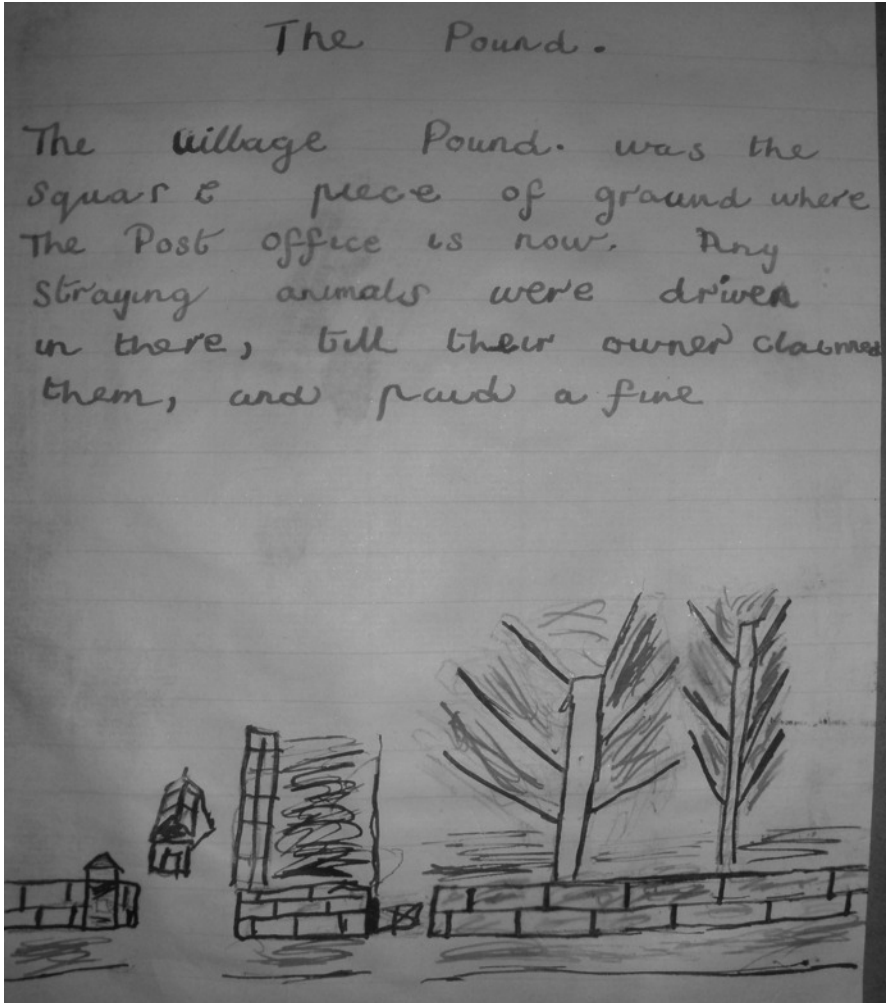 The Pound.
The Village Pound. was the
square piece of ground where
The Post office is now. Any
straying animals were driven
in there, till their owner claimed
them, and paid a fine